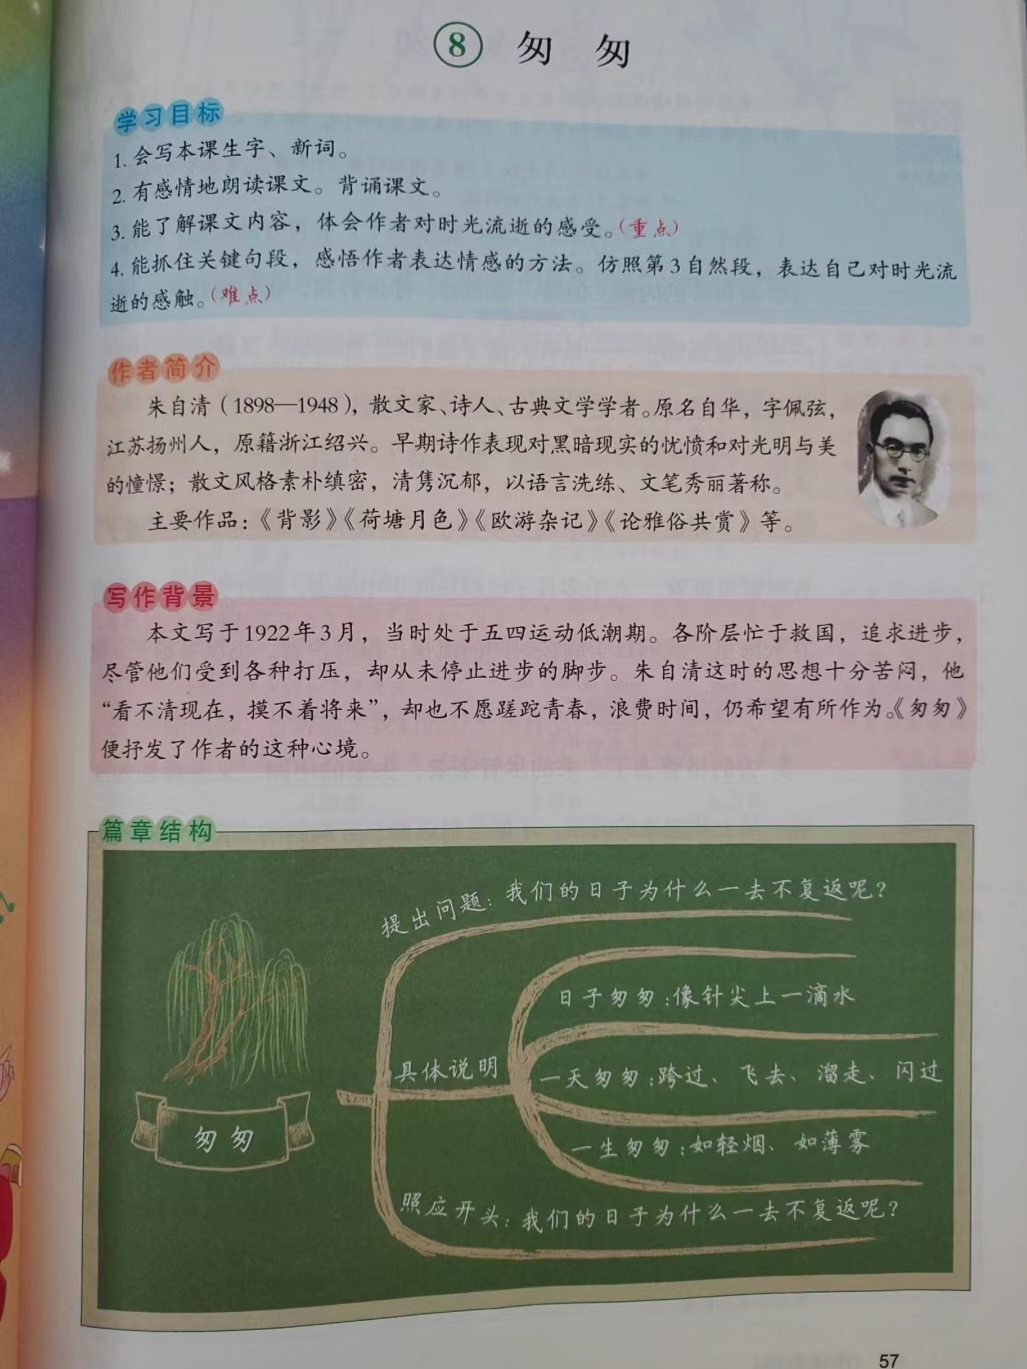 8 匆匆
学习目标
1. 会写本课生字、新词。
2. 有感情地朗读课文。背诵课文。
3. 能了解课文内容，体会作者对时光流逝的感受。（重点）
4. 能抓住关键句段，感悟作者表达情感的方法。仿照第3自然段，表达自己对时光流
逝的感触。（难点）
作者简介
朱自清（1898—1948），散文家、诗人、古典文学学者。原名自华，字佩弦，
江苏扬州人，原籍浙江绍兴。早期诗作表现对黑暗现实的忧愤和对光明与美
的憧憬；散文风格素朴缜密，清隽沉郁，以语言洗练、文笔秀丽著称。
主要作品：《背影》《荷塘月色》《欧游杂记》《论雅俗共赏》等。
写作背景
本文写于1922年3月，当时处于五四运动低潮期。各阶层忙于救国，追求进步，
尽管他们受到各种打压，却从未停止进步的脚步。朱自清这时的思想十分苦闷，他
“看不清现在，摸不着将来”，却也不愿蹉跎青春，浪费时间，仍希望有所作为。《匆匆》
便抒发了作者的这种心境。
篇章结构
提出问题：我们的日子为什么一去不复返呢？
日子匆匆：像针尖上一滴水
具体说明
一天匆匆：跨过、飞去、溜走、闪过
匆匆
一生匆匆：如轻烟、如薄雾
照应开头：我们的日子为什么一去不复返呢？
57